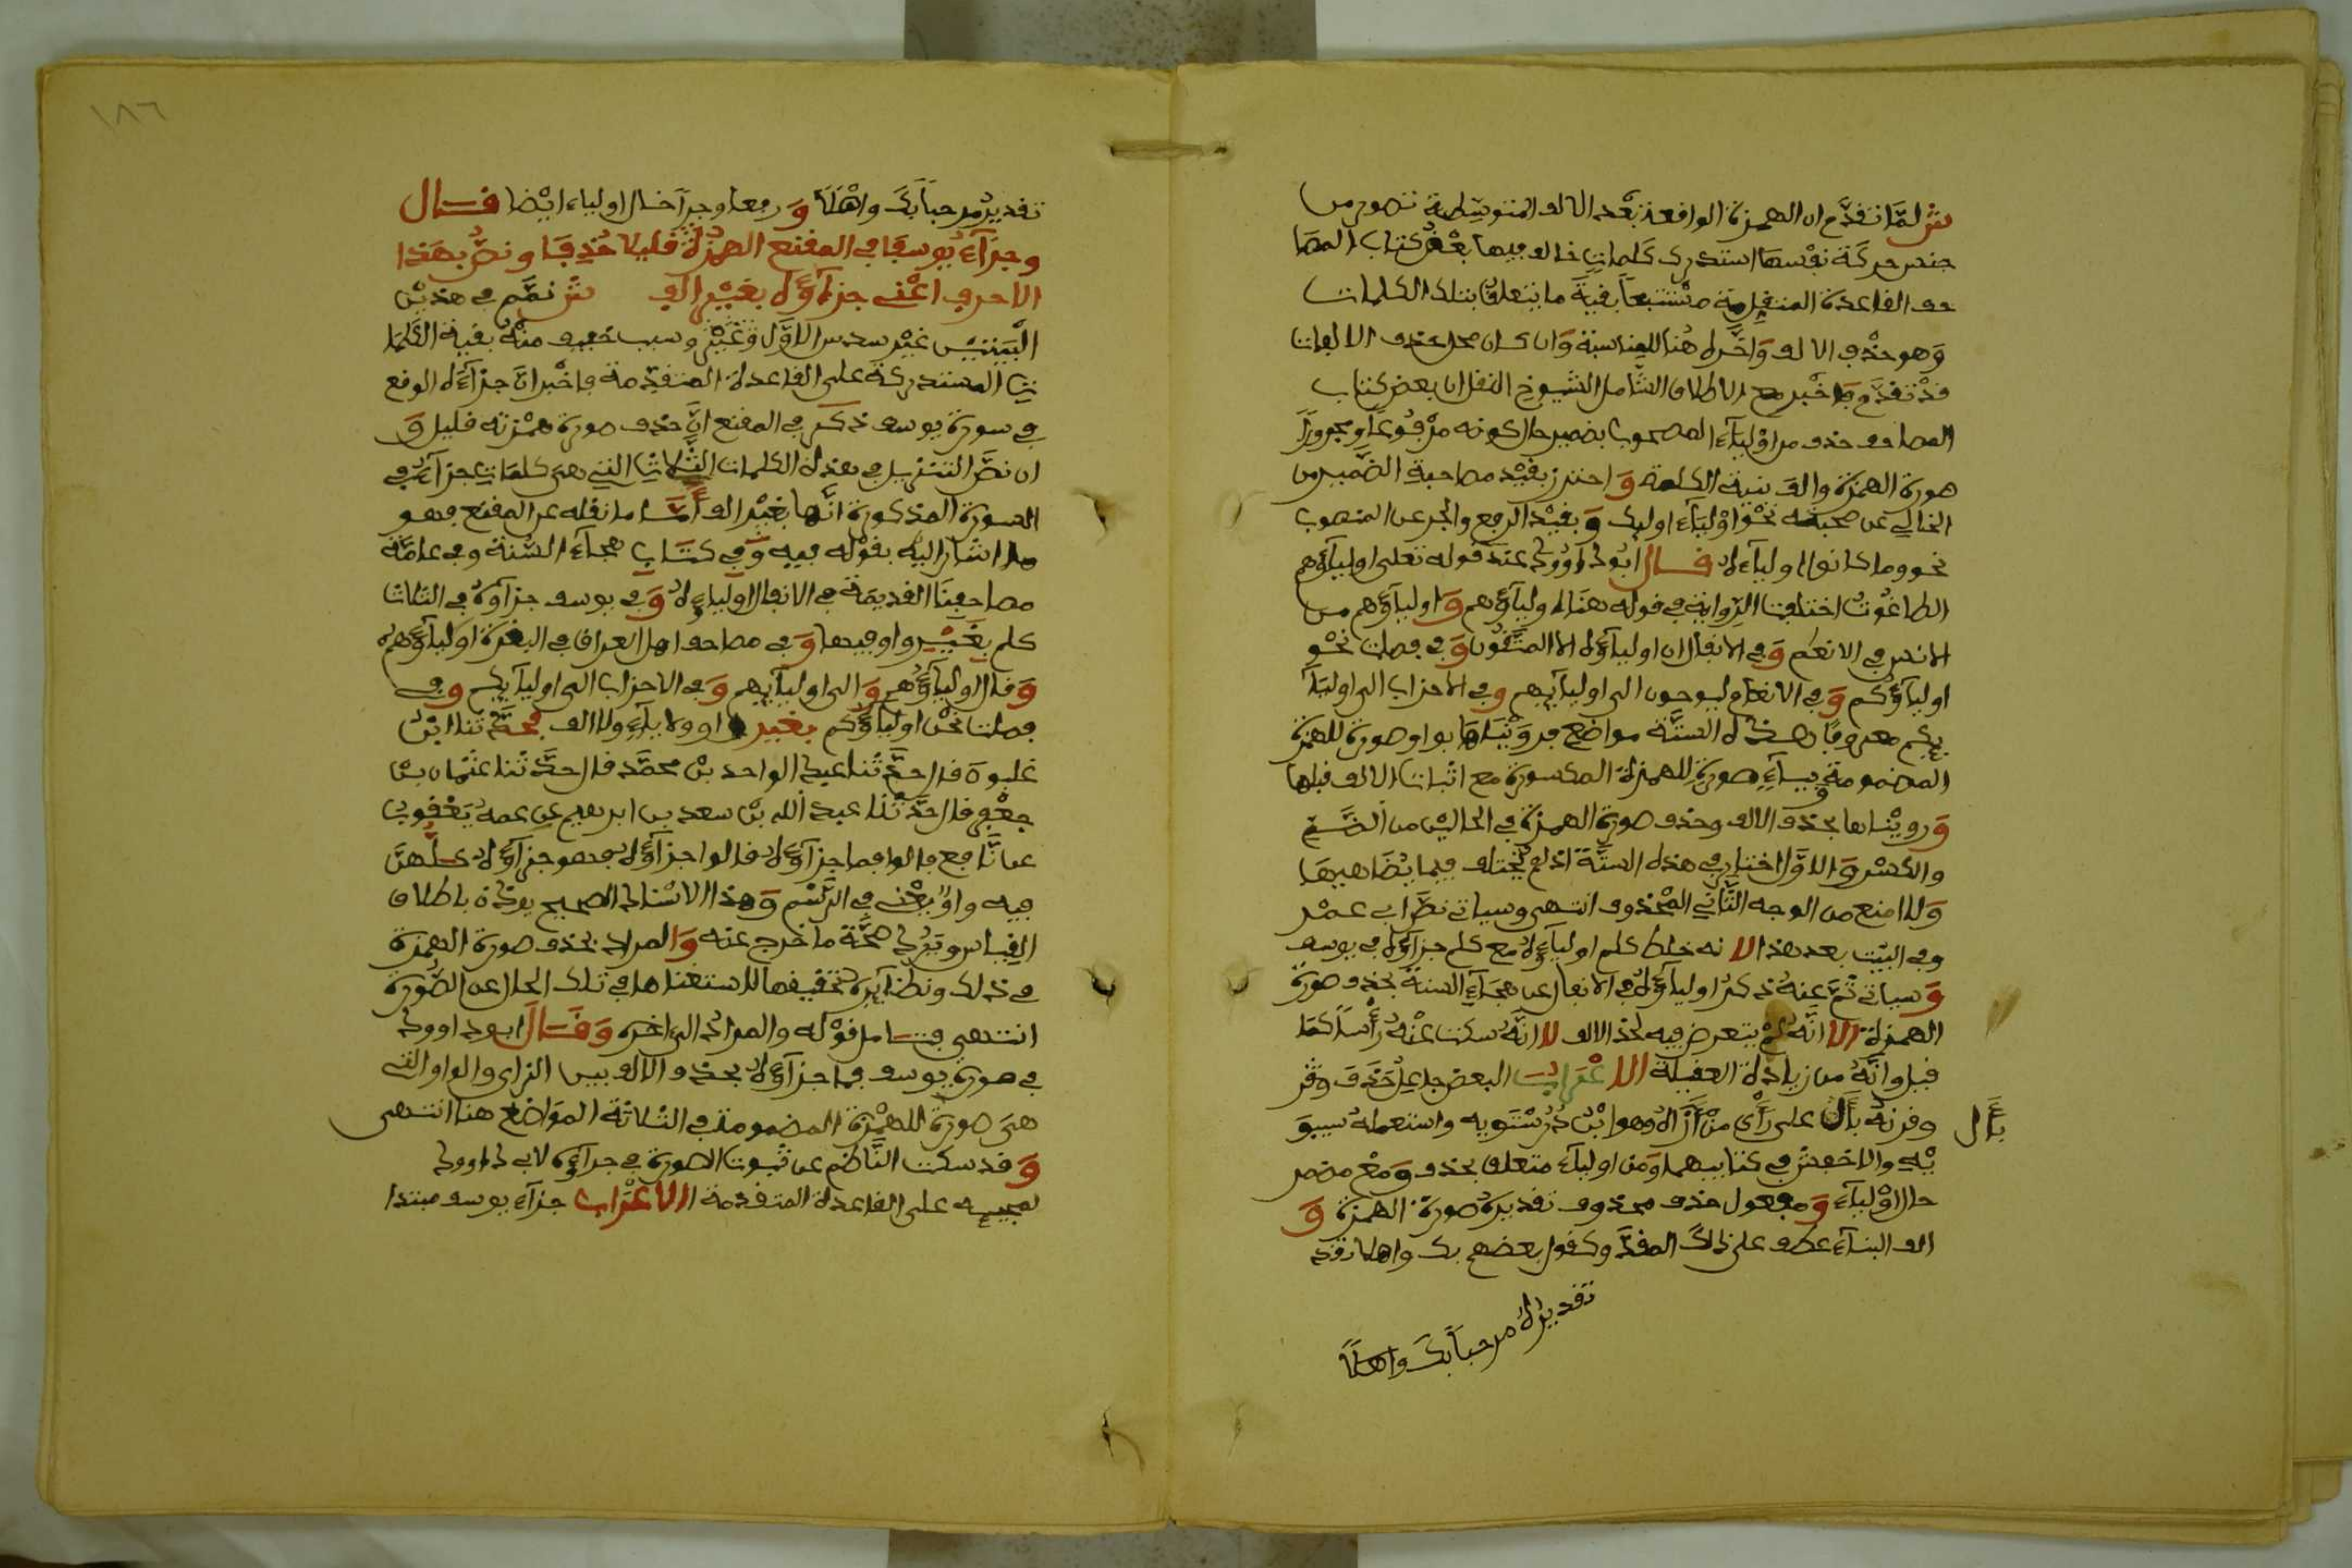 ش لمّا تقدّم ان الهمزة الواقعة بعد الالف المتوسطة تصور من
جنس حركة نفسها استدرك كلمات خالف فيها بعض كتاب المصا
حف القاعدة المتقدمة متتبعا بقية ما يتعلق بتلك الكلمات
وهو حذف الالف واخره هنا للمناسبة وان كان محل حذف الالفات
قد تقدم واخبر مع الاطلاق الشامل لشيوخ النقل ان بعض كتاب
المصاحف حذف من اولياء المصحوب بضمير حال كونه مرفوعا ومجرورا
صورة الهمزة والف بنية الكلمة و احترز بقيد مصاحبة الضمير من
الخالي عن صحبته نحو اولياء اوليك و بقيد الرفع والجر عن المنصوب
نحو وما كانوا اولياءه قال ابو داوود عند قوله تعلى اولياؤهم
الطاغوت اختلفت الرواية في قوله هنا اولياؤهم و اولياؤهم من
الانس في الانعم و في الانفال ان اولياؤه الا المتقون و في فصلت نحن
اولياؤكم و في الانعام ليوحون الى اوليايهم و في الاحزاب الى اوليآ
يكم معروفا بهذه الستة مواضع فرويناها بواو صورة للهمزة
المضمومة وبياء صورة للهمزة المكسورة مع اثبات الالف قبلها
و رويناها بحذف الالف وحذف صورة الهمزة في الحالين من الضم
والكسر و الاول اختار في هذه الستة اذ لم تختلف فيما يضاهيها
ولا امنع من الوجه الثاني المحذوف انتهى وسياتي نص ابي عمر
وفي البيت بعد هذا الا نه خلط كلم اولياؤه مع كلم جزاؤه في يوسف
و سياتي ثم عنه ذكر اولياؤه في الانفال عن هجاء السنة بحذف صورة
الهمزة الا انه لم يتعرض فيه لحذ الالف لا انه سكت عنه رأسا كما
قيل وانه من زيادة العقيلة الاعراب البعض جا على حذف وقر
وقرنه بأل على رأي من أزاله وهو ابن درستويه واستعمله سيبو
يه والاخفش في كتابيهما ومن اولياء متعلق بحذف ومع مضمر
حال اولياء و مفعول حذف محذوف تقديره صورة الهمزة و
الف البناء عطف على ذلك المقدر وكقول بعضهم بك واهلا تقد
تقديره مرحبا بك واهلا
بأل
١٨٦
تقديره مرحبا بك واهلا و رفعا وجرا حال اولياء ايضا قال
وجزاء يوسف في المقنع الهمز قليلا حذفا ونص بهذا
الاحرف اعني جزاؤه بغير الف ش تمم في هذين
البيتين غير سدس الاول وغير وسبب خفيف منه بقية الكلما
ت المستدركة على القاعدة المتقدمة فاخبر ان جزاؤه الوقع
في سورة يوسف ذكر في المقنع ان حذف صورة همزته قليل و
ان نص التنزيل في هذه الكلمات الثلاث التي هي كلمات جزاؤه في
السورة المذكورة انها بغير الف أما ما نقله عن المقنع فهو
ما اشار اليه بقوله فيه و في كتاب هجاء السنة وفي عامة
مصاحفنا القديمة في الانفال اولياءه و في يوسف جزاؤه في الثلاث
كلم بغير واو فيها و في مصاحف اهل العراق في البقرة اولياؤهم
و قال اولياؤهم و الى اوليايهم و في الاحزاب الى اوليايكم وفي
فصلت نحن اولياؤكم بغير واو ولا ياء ولا الف فحدثنا ابن
غلبون قال حدثنا عبد الواحد بن محمد قال حدثنا عثمان بن
جعفر قال حدثنا عبد الله بن سعد بن ابرهيم عن عمه يعقوب
عن نافع قالوا فما جزاؤه قالوا جزاؤه فهو جزاؤه كلهن
فيه واو يعني في الرسم وهذا الاسناد الصحيح يوذن باطلاق
القياس ويرد صحة ما خرج عنه و المراد بحذف صورة الهمزة
في ذلك ونظايره تخفيفها لاستغناها في تلك الحال عن الصورة
انتهى فتامل قوله والمراد الى اخره وقال ابو داوود
في صورة يوسف فما جزاؤه بحذف الالف بين الزاي والواو التي
هي صورة للهمزة المضمومة في الثلاثة المواضع هنا انتهى
و قد سكت الناظم عن ثبوت الصورة في جزاؤه لابي داوود
لمجيه على القاعدة المتقدمة الاعراب جزاء يوسف مبتدا